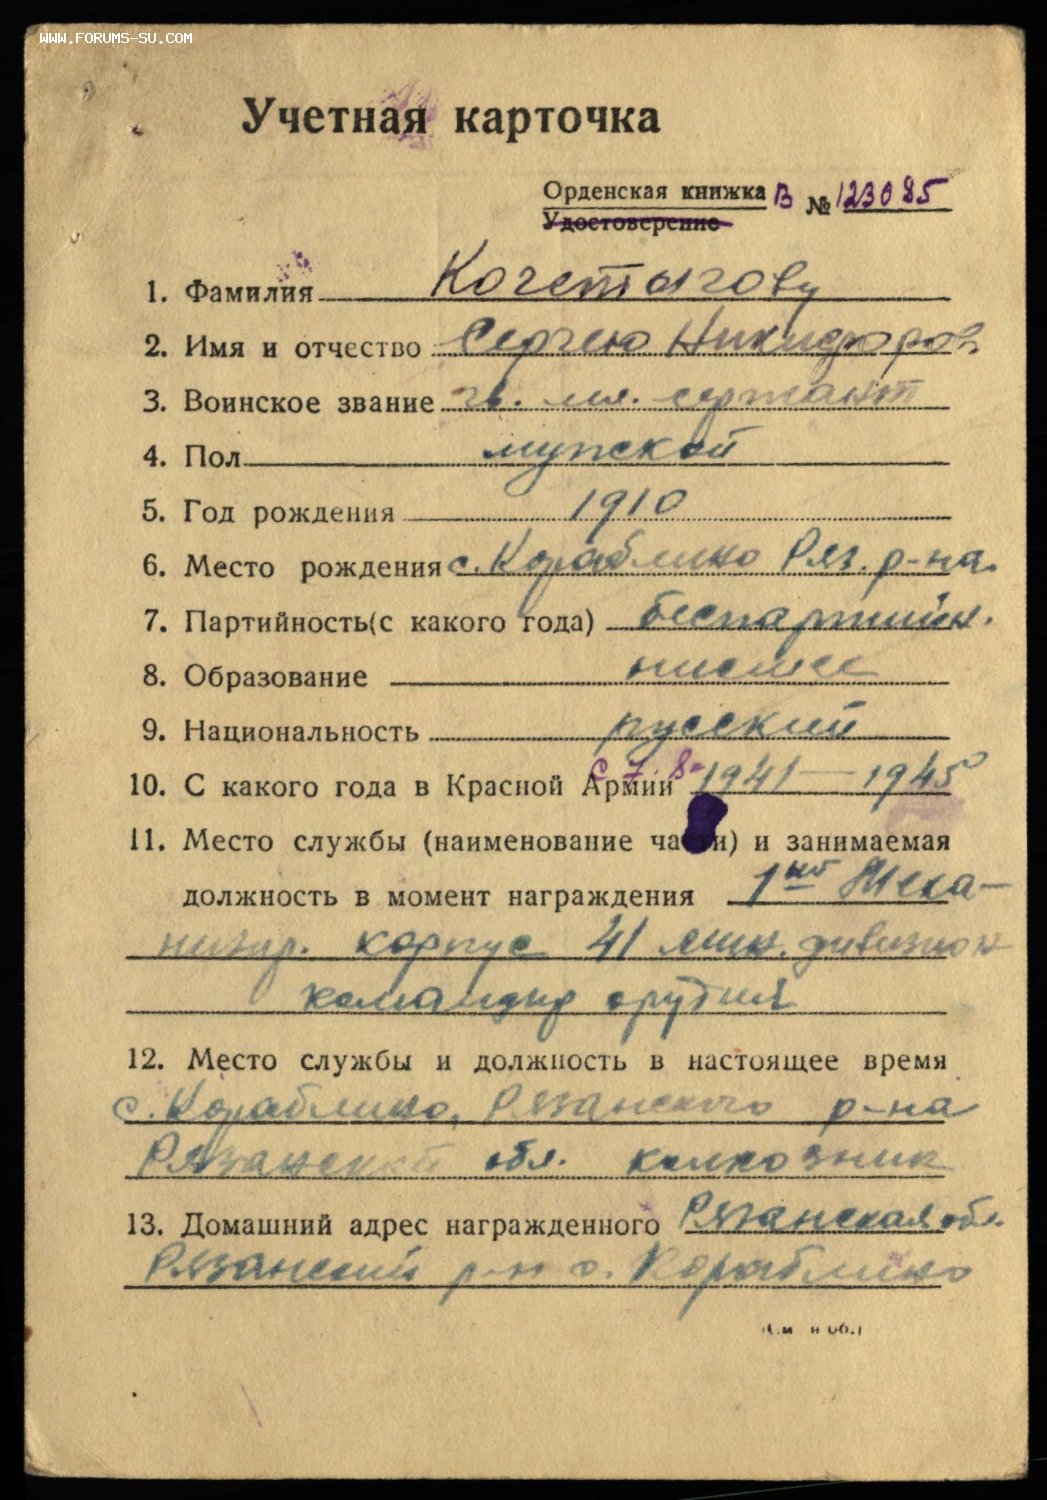 WWW.FORUMS-SU.COM
Учетная карточка
Орденская книжка В № 123085
Удостоверение
1. Фамилия Кочетыгову
2. Имя и отчество Сергею Никифоров
3. Воинское звание гв. мл. сержант
4. Пол мужской
5. Год рождения 1910
6. Место рождения с. Кораблино Ряз. р-на.
7. Партийность(с какого года) беспартийн.
8. Образование низшее
9. Национальность русский
10. С какого года в Красной Армии с 7. 8- 1941 — 1945
11. Место службы (наименование части) и занимаемая
должность в момент награждения 1ый Меха-
низир. корпус 41 мин. дивизион
командир орудия
12. Место службы и должность в настоящее время
с. Кораблино, Рязанского р-на
Рязанской обл. колхозник
13. Домашний адрес награжденного Рязанская обл.
Рязанский р-н с. Кораблино